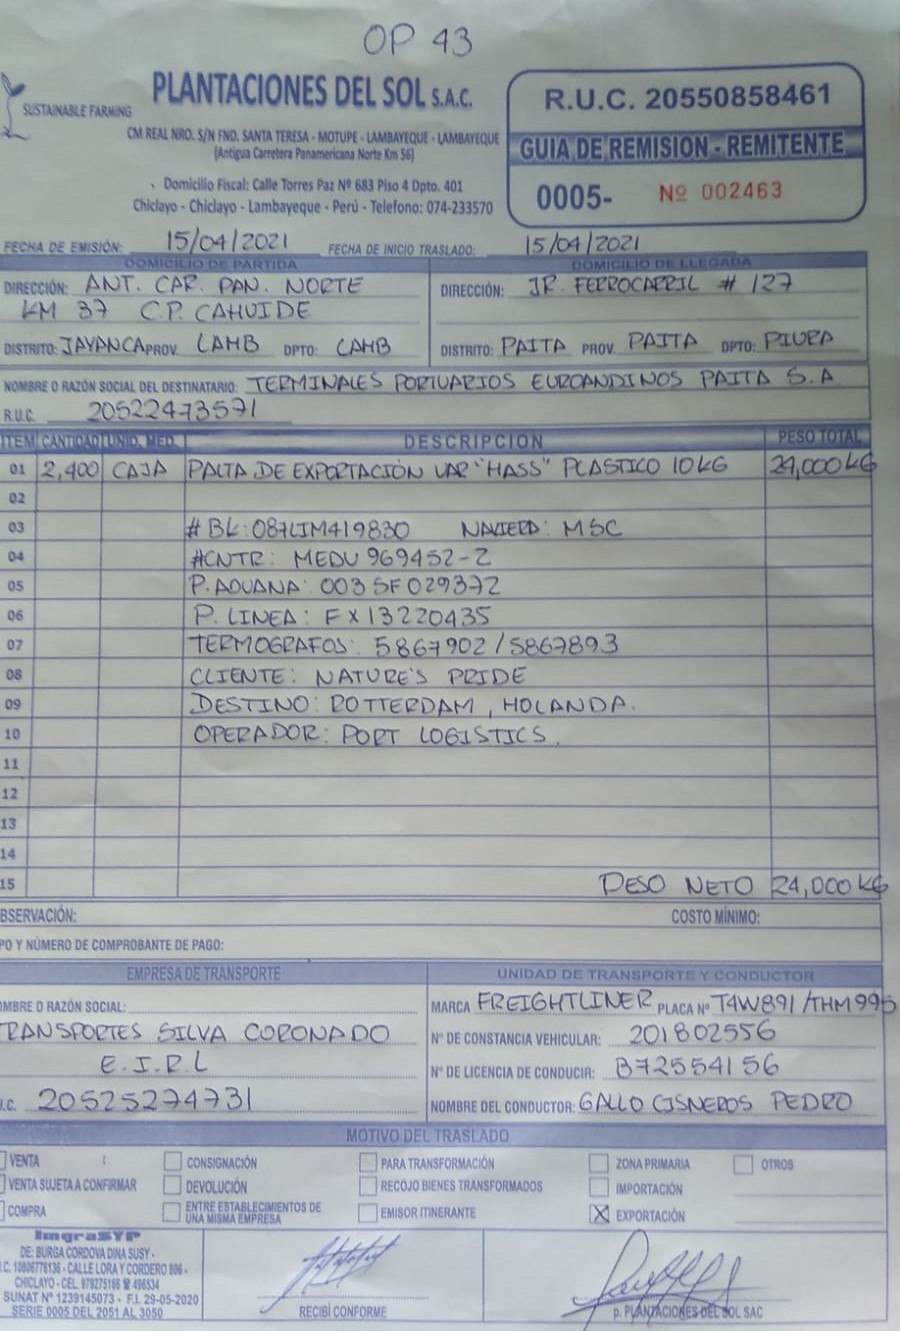 OP 43
SUSTAINABLE FARMING
PLANTACIONES DEL SOL S.A.C.
CM REAL NRO. S/N FND. SANTA TERESA - MOTUPE - LAMBAYEQUE - LAMBAYEQUE
(Antigua Carretera Panamericana Norte Km 56)
Domicilio Fiscal: Calle Torres Paz Nº 683 Piso 4 Dpto. 401
Chiclayo - Chiclayo - Lambayeque - Perú - Telefono: 074-233570
R.U.C. 20550858461
GUIA DE REMISION - REMITENTE
0005- Nº 002463
FECHA DE EMISIÓN: 15/04/2021 FECHA DE INICIO TRASLADO: 15/04/2021
DOMICILIO DE PARTIDA
DIRECCIÓN: ANT. CAR. PAN. NORTE
KM 37 C.P. CAHUIDE
DISTRITO: JAYANCA PROV. LAMB DPTO: LAMB
DOMICILIO DE LLEGADA
DIRECCIÓN: JR. FERROCARRIL # 127
DISTRITO: PAITA PROV. PAITA DPTO: PIURA
NOMBRE O RAZÓN SOCIAL DEL DESTINATARIO: TERMINALES PORTUARIOS EUROANDINOS PAITA S.A.
R.U.C. 20522473571
ITEM CANTIDAD UNID. MED. DESCRIPCION PESO TOTAL
01 2,400 CAJA PALTA DE EXPORTACIÓN VAR "HASS" PLASTICO 10KG 24,000KG
02
03 # BK: 087LIM419830 NAVIERA: MSC
04 #CNTR: MEDU 969452-2
05 P. ADUANA: 003SF029372
06 P. LINEA: FX13220435
07 TERMOGRAFOS: 5867902/5867893
08 CLIENTE: NATURE'S PRIDE
09 DESTINO: ROTTERDAM, HOLANDA.
10 OPERADOR: PORT LOGISTICS.
11
12
13
14
15 PESO NETO 24,000KG
BSERVACIÓN: COSTO MÍNIMO:
PO Y NÚMERO DE COMPROBANTE DE PAGO:
EMPRESA DE TRANSPORTE
OMBRE O RAZÓN SOCIAL:
TRANSPORTES SILVA CORONADO
E.I.R.L
U.C. 20525274731
UNIDAD DE TRANSPORTE Y CONDUCTOR
MARCA FREIGHTLINER PLACA Nº T4W891/THM995
Nº DE CONSTANCIA VEHICULAR: 201802556
Nº DE LICENCIA DE CONDUCIR: B72554156
NOMBRE DEL CONDUCTOR: GALLO CISNEROS PEDRO
MOTIVO DEL TRASLADO
VENTA CONSIGNACIÓN PARA TRANSFORMACIÓN ZONA PRIMARIA OTROS
VENTA SUJETA A CONFIRMAR DEVOLUCIÓN RECOJO BIENES TRANSFORMADOS IMPORTACIÓN
COMPRA ENTRE ESTABLECIMIENTOS DE UNA MISMA EMPRESA EMISOR ITINERANTE X EXPORTACIÓN
ImgraSYP
DE: BURGA CORDOVA DINA SUSY -
.C. 10806778136 - CALLE LORA Y CORDERO 806 -
CHICLAYO - CEL. 979275168 496534
SUNAT Nº 1239145073 - F.I. 29-05-2020
SERIE 0005 DEL 2051 AL 3050
RECIBÍ CONFORME
p. PLANTACIONES DEL SOL SAC